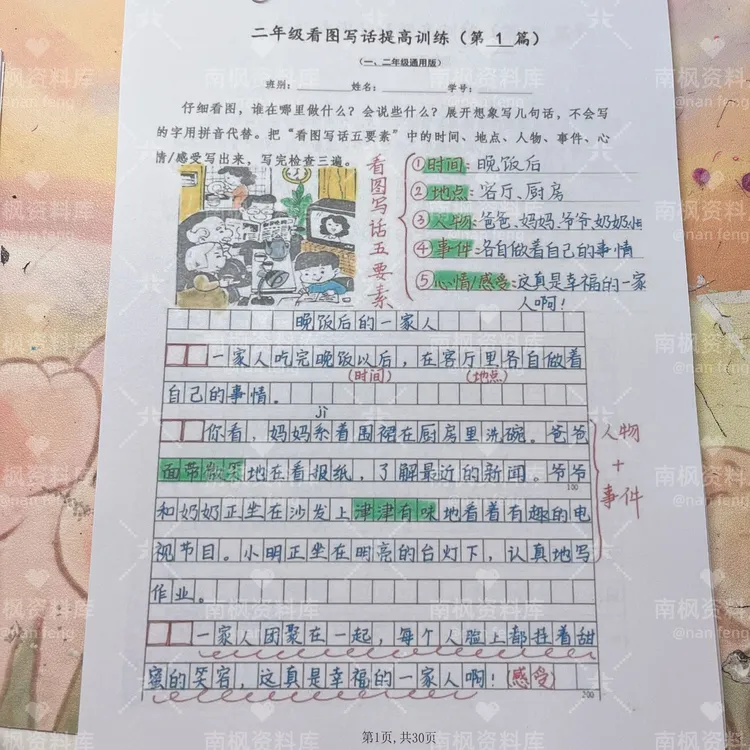 二年级看图写话提高训练（第 1 篇）
（一、二年级通用版）
班别：________ 姓名：________ 学号：________
仔细看图，谁在哪里做什么？会说些什么？展开想象写几句话，不会写
的字用拼音代替。把“看图写话五要素”中的时间、地点、人物、事件、心
情/感受写出来，写完检查三遍。
看图写话五要素
①时间：晚饭后
②地点：客厅、厨房
③人物：爸爸、妈妈、爷爷、奶奶、
④事件：各自做着自己的事情
⑤心情/感受：这真是幸福的一家
人啊！
晚饭后的一家人
一家人吃完晚饭以后，在客厅里各自做着
（时间） （地点）
自己的事情。
jì
你看，妈妈系着围裙在厨房里洗碗。爸爸
面带微笑地在看报纸，了解最近的新闻。爷爷
100
和奶奶正坐在沙发上津津有味地看着有趣的电
视节目。小明正坐在明亮的台灯下，认真地写
作业。
人物
+
事件
一家人团聚在一起，每个人脸上都挂着甜
蜜的笑容，这真是幸福的一家人啊！（感受）
200
第1页，共30页
南枫资料库
@nan feng